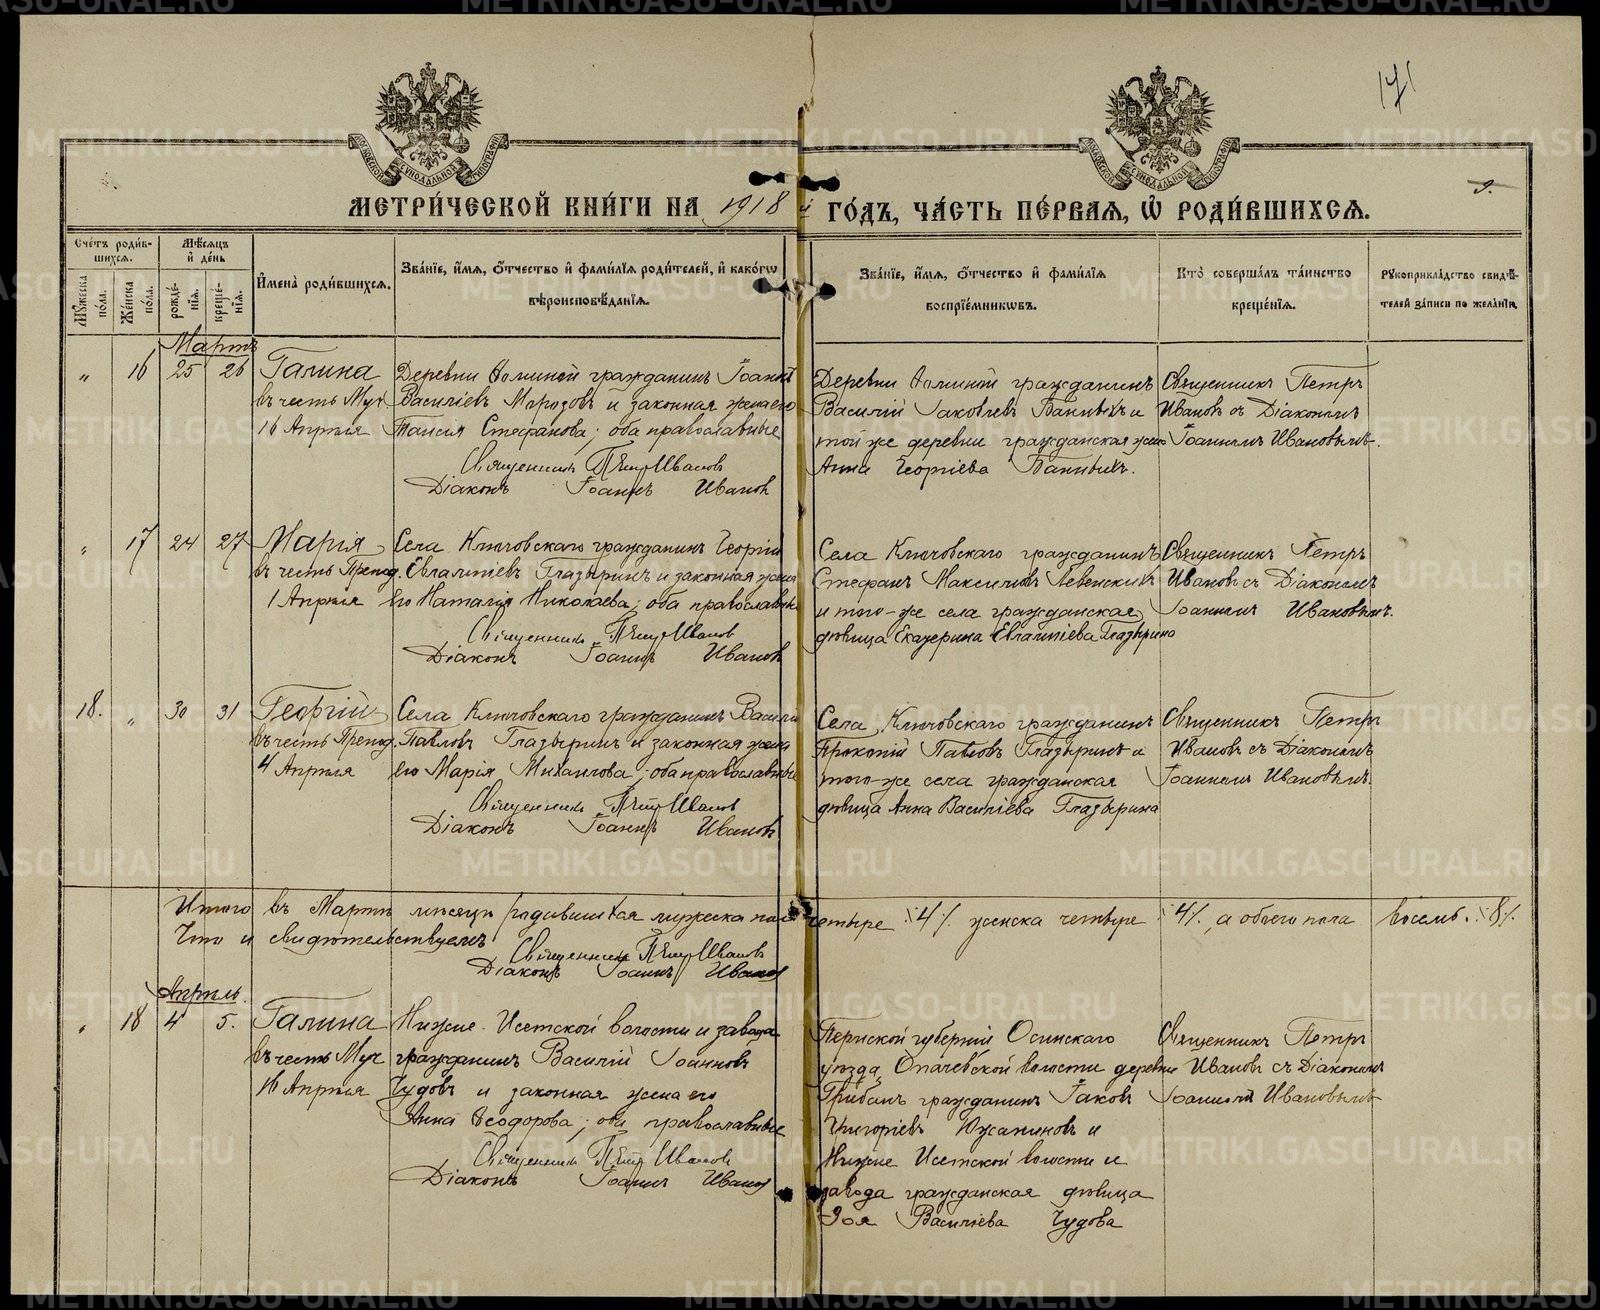 171
9.
МЕТРИ́ЧЕСКОЙ КНИ́ГИ НА 1918 й ГО́ДЪ, ЧА́СТЬ ПЕ́РВАЯ, Ѡ РОДИ́ВШИХСЯ.
Сче́тъ роди́в-
шихся.
Мѣ́сяцъ
и҆ де́нь
Мꙋ́жеска
по́ла.
Же́нска
по́ла.
рожде́-
нїя.
креще́-
нїя.
И҆мена̀ роди́вшихся.
Зва́нїе, и҆́мя, ѻ҆́тчество и҆ фамі́лїя роди́телей, и҆ како́гѡ
вѣроисповѣ́данїя.
Зва́нїе, и҆́мя, ѻ҆́тчество и҆ фамі́лїя
воспрїе́мникѡвъ.
Кто̀ соверша́лъ та́инство
креще́нїя.
Рꙋкоприкла́дство свидѣ́-
телей за́писи по жела́нїю.
Мартъ
„ 16 25 26
Галина
въ честь Муч
16 Апрѣля
Деревни гражданинъ Іоаннъ
Василіевъ Морозовъ и законная жена его
Таисія Стефанова; оба православные
Священникъ Петр Иванов
Діаконъ Іоаннъ Иванов
Деревни гражданинъ
Василій Іаковлевъ Банныхъ и
той же деревни гражданская жена
Анна Георгіева Банныхъ.
Священникъ Петръ
Ивановъ съ Діакономъ
Іоанномъ Ивановымъ.
„ 17 24 27
Марія
въ честь Препод.
1 Апрѣля
Села Ключовскаго гражданинъ Георгій
Евлампіевъ Глазыринъ и законная жена
его Наталія Николаева; оба православные
Священникъ Петр Иванов
Діаконъ Іоаннъ Иванов
Села Ключовскаго гражданинъ
Стефанъ Максимовъ Левенскихъ
и того-же села гражданская
дѣвица Екатерина Евлампіева Глазырина
Священникъ Петръ
Ивановъ съ Діакономъ
Іоанномъ Ивановымъ.
18. „ 30 31
Георгій
въ честь Препод.
4 Апрѣля
Села Ключовскаго гражданинъ Василій
Павловъ Глазыринъ и законная жена
его Марія Михаилова; оба православные
Священникъ Петр Иванов
Діаконъ Іоаннъ Иванов
Села Ключовскаго гражданинъ
Прокопій Павловъ Глазыринъ и
того-же села гражданская
дѣвица Анна Василіева Глазырина
Священникъ Петръ
Ивановъ съ Діакономъ
Іоанномъ Ивановымъ.
Итого въ Мартѣ мѣсяцѣ родившихся мужеска пола четыре /4/. женска четыре /4/., а обоего пола восемь. /8/.
Что и свидѣтельствуемъ
Священникъ Петр Иванов
Діаконъ Іоаннъ Иванов
Апрѣль.
„ 18 4 5.
Галина
въ честь Муч
16 Апрѣля
Нижне-Исетской волости и завода
гражданинъ Василій Іоанновъ
Чудовъ и законная жена его
Анна Ѳеодорова; оба православные
Священникъ Петр Иванов
Діаконъ Іоаннъ Иванов
Пермской губерніи Осинскаго
уѣзда, Опачевской волости деревни
Грибанъ гражданинъ Іаковъ
Григоріевъ Южаниновъ и
Нижне Исетской волости и
завода гражданская дѣвица
Зоя Василіева Чудова
Священникъ Петръ
Ивановъ съ Діакономъ
Іоанномъ Ивановымъ
METRIKI.GASO-URAL.RU